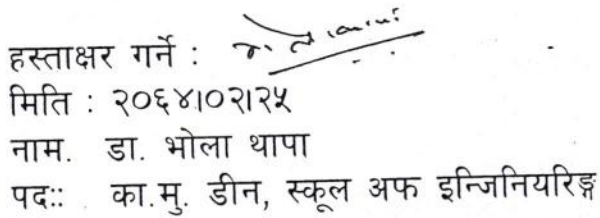 हस्ताक्षर गर्ने :
मिति : २०६४।०२।२५
नाम. डा. भोला थापा
पदः: का.मु. डीन, स्कूल अफ इन्जिनियरिङ्ग